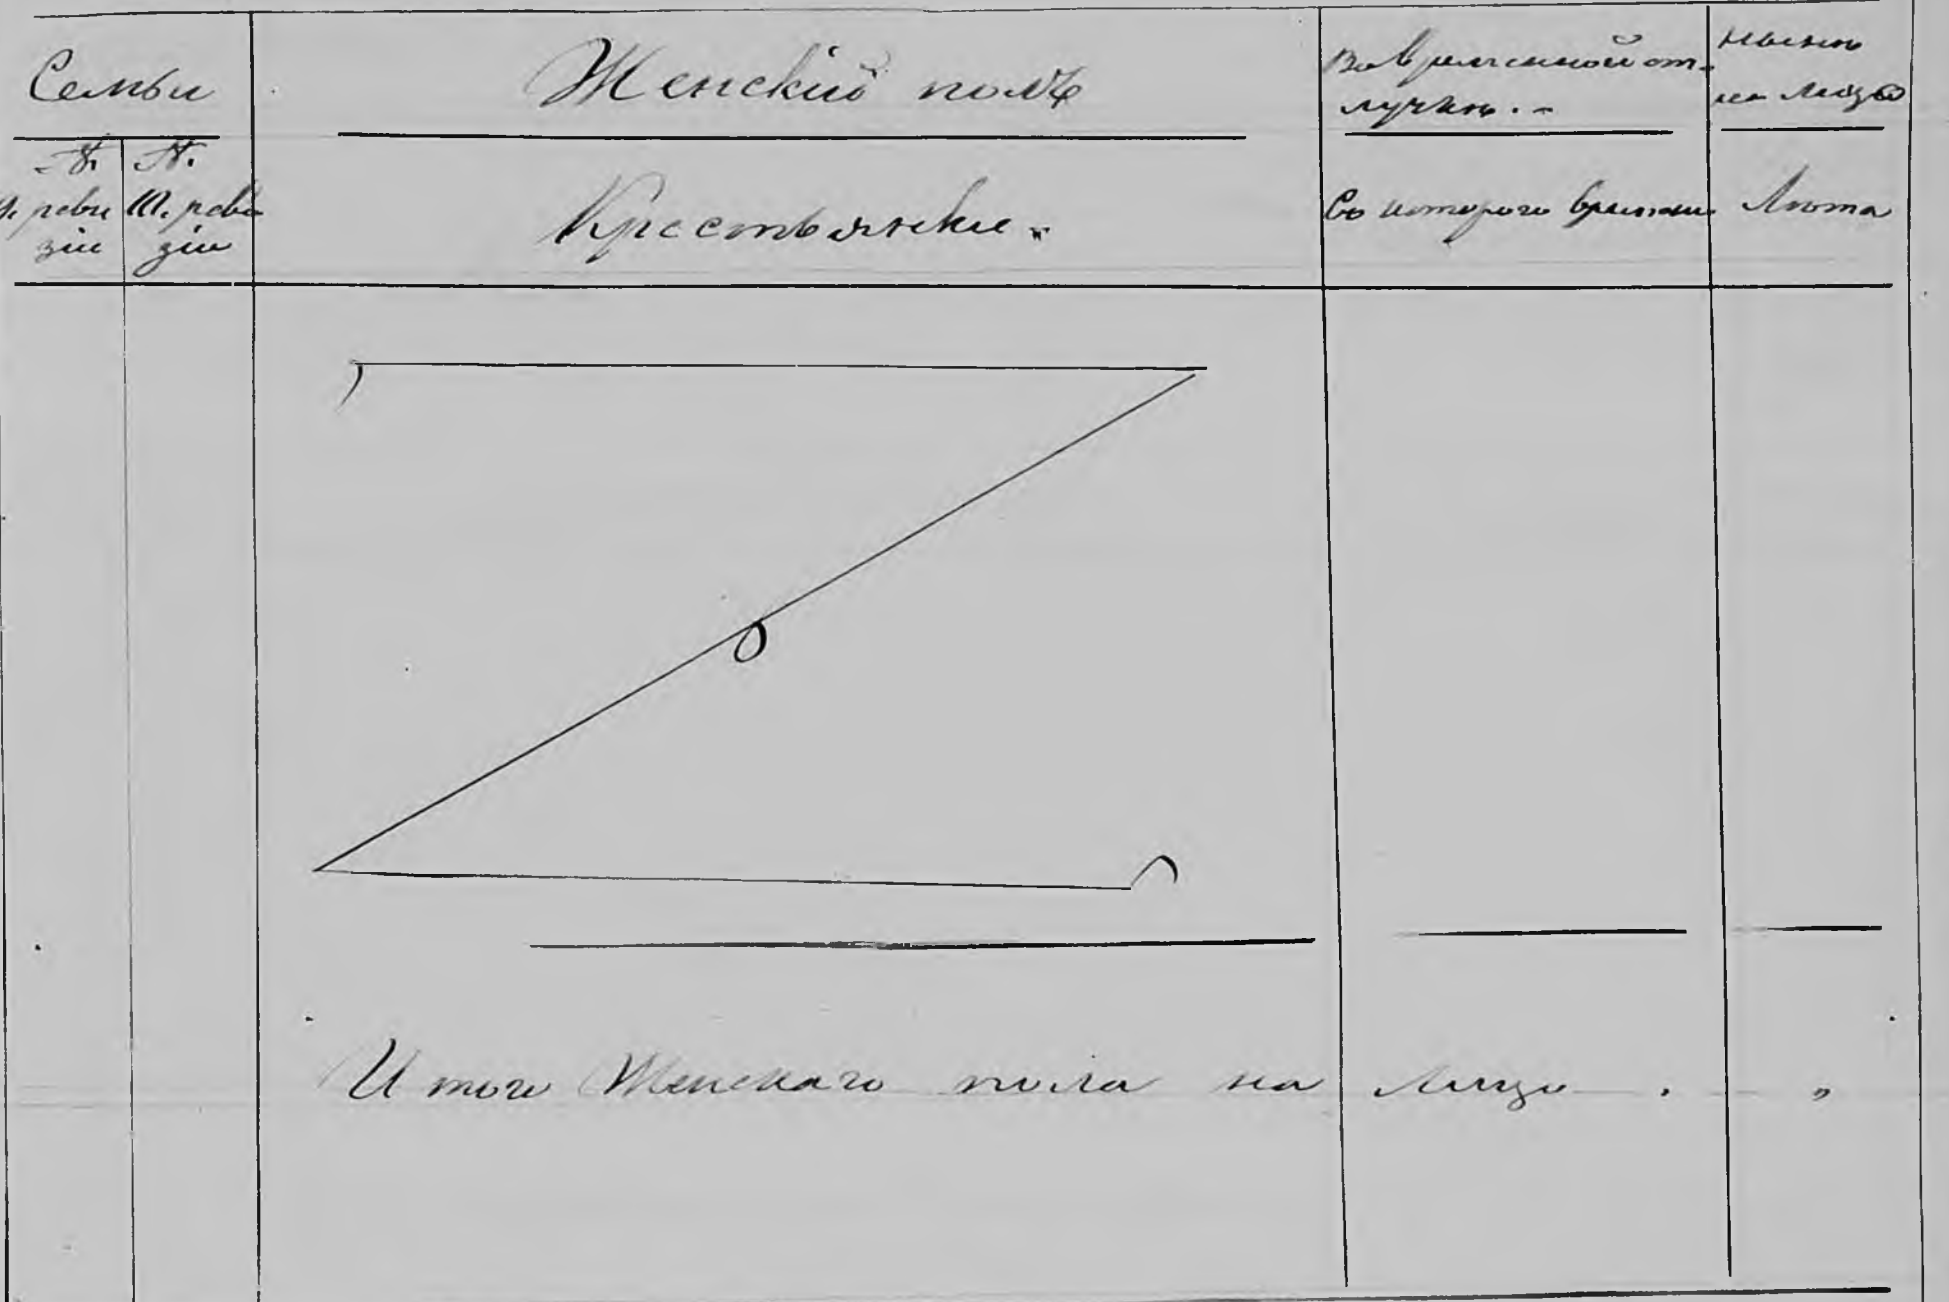 Семьи
Женскій полъ
Во временной от-
лучкѣ. -
нынѣ
на лицо
№.
№.
реви
зіи
10. реви
зіи
Крестьянскіе.
Съ котораго времени
Лѣта
Итого Женскаго пола на лицо . „